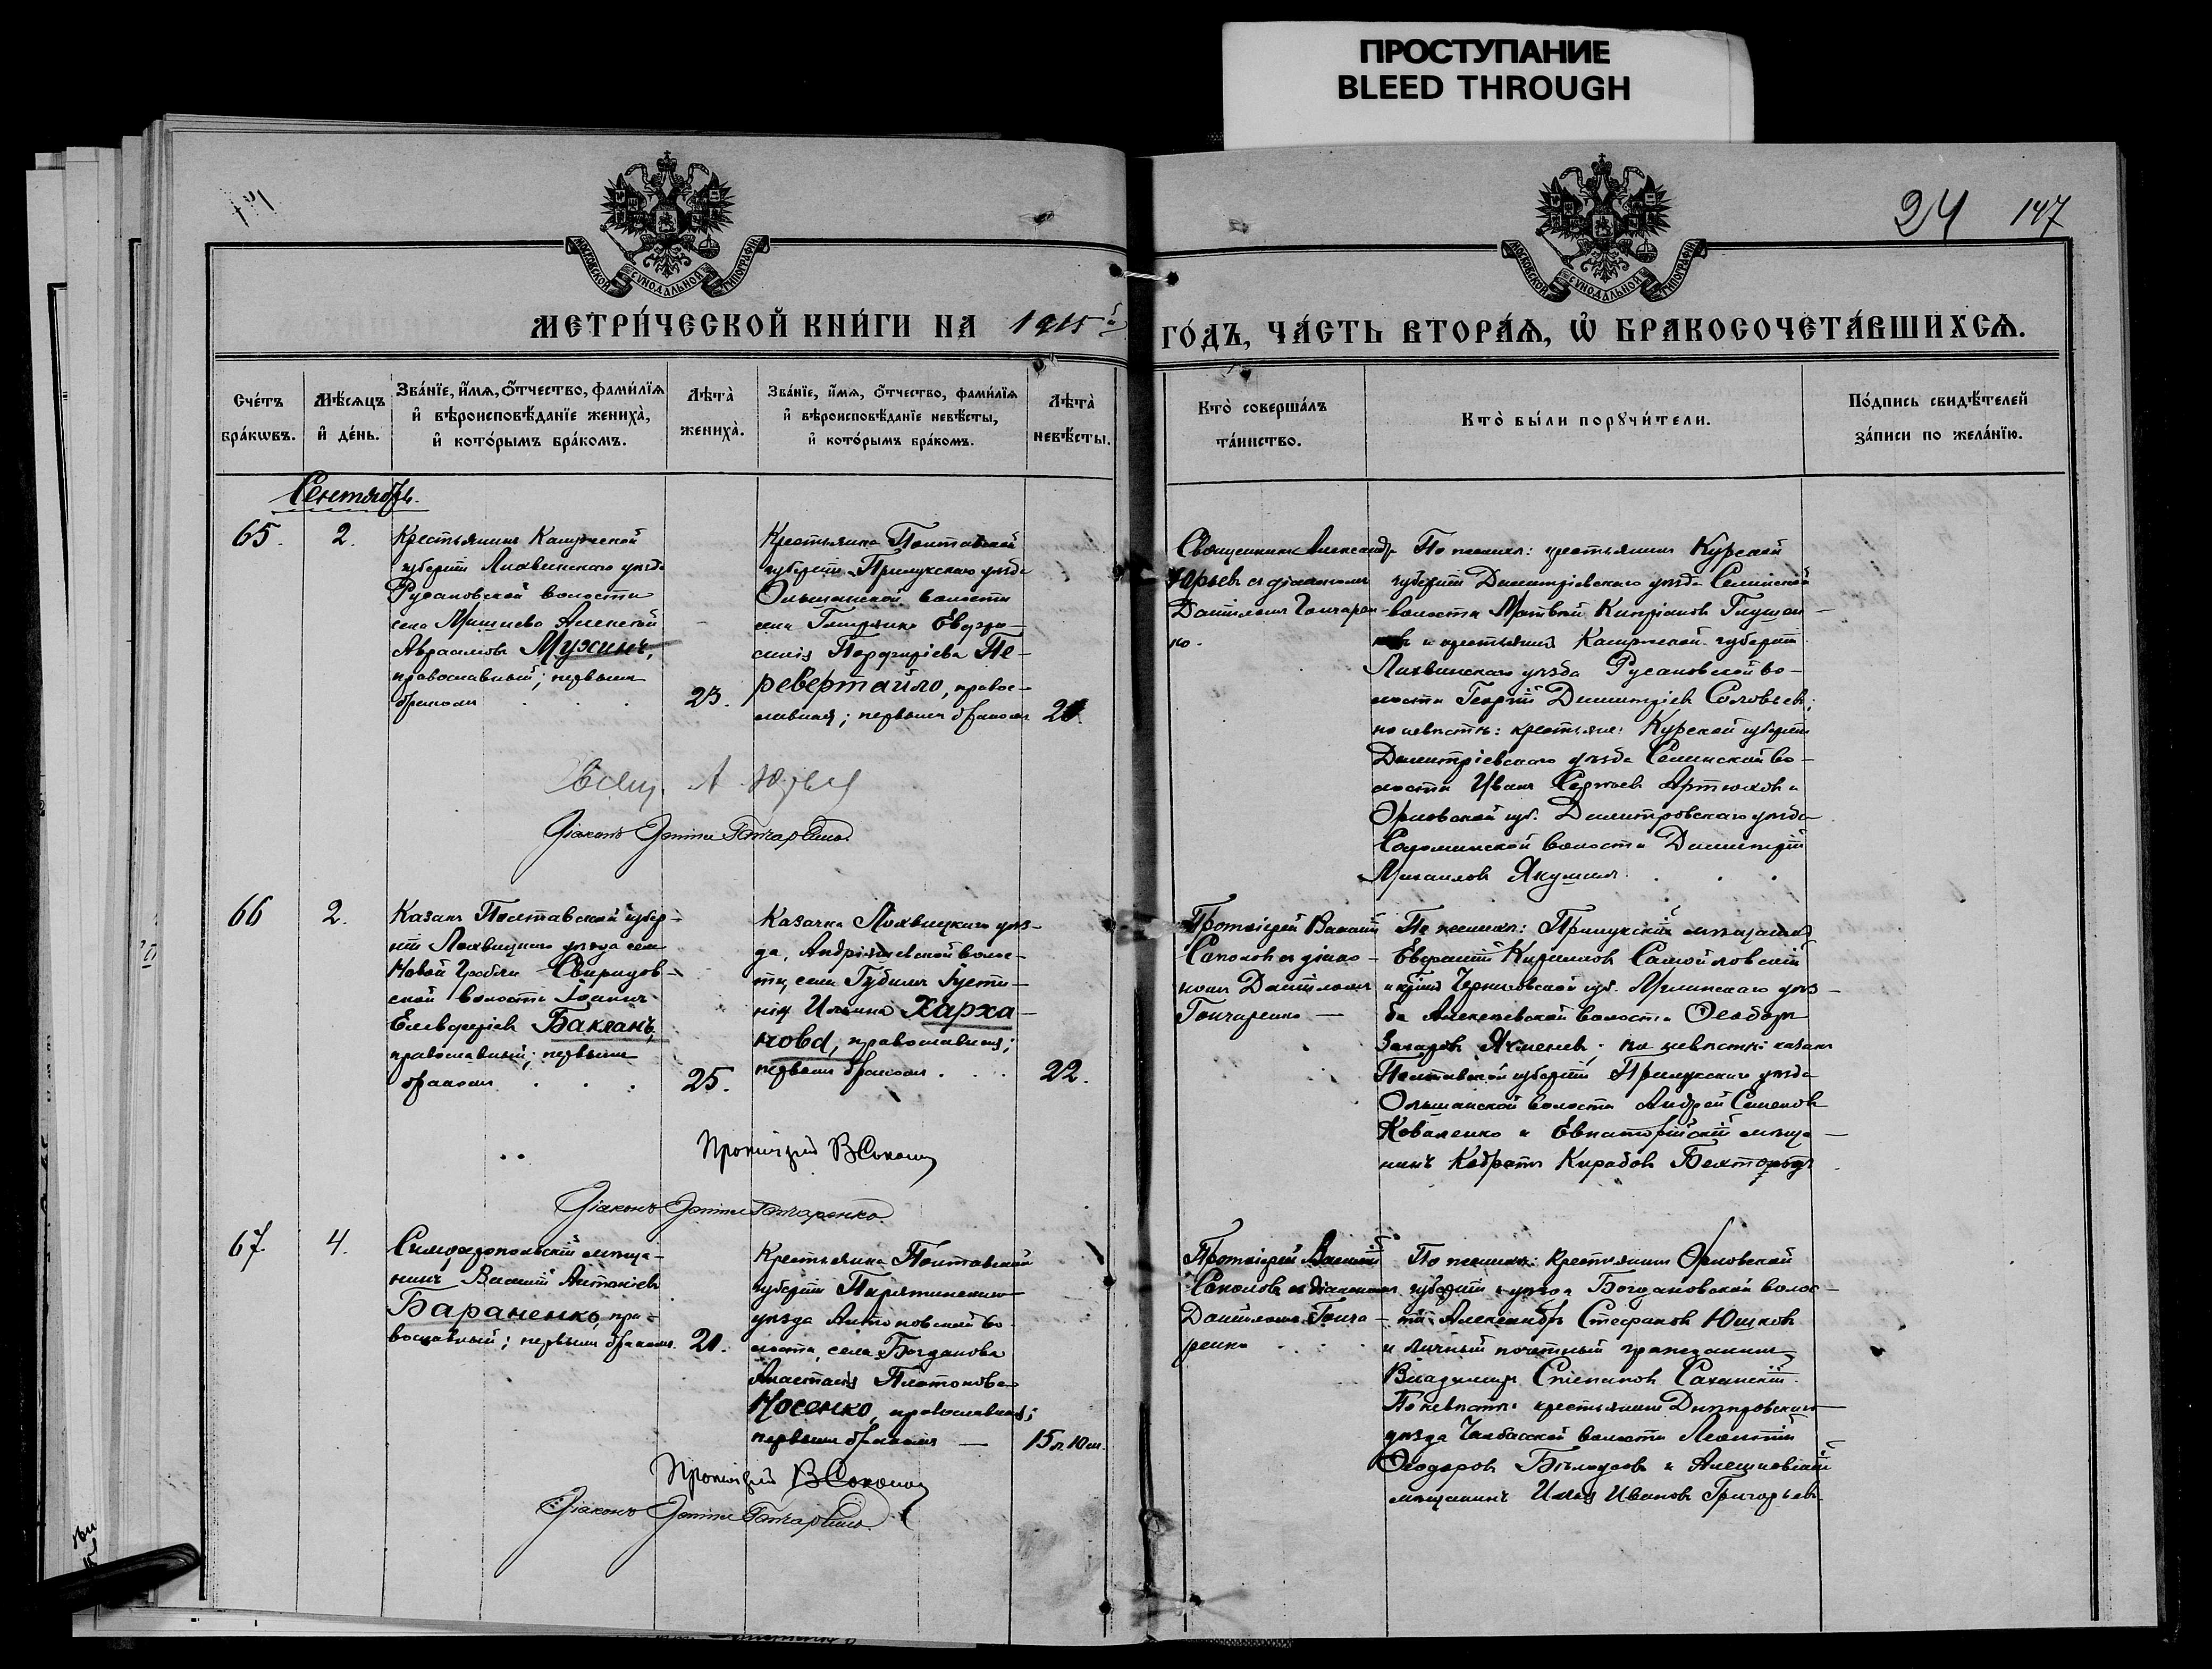 ПРОСТУПАНИЕ
BLEED THROUGH
24 147
МОСКОВСКОЙ СѴНОДАЛЬНОЙ ТИПОГРАФІИ
МОСКОВСКОЙ СѴНОДАЛЬНОЙ ТИПОГРАФІИ
МЕТРИ́ЧЕСКОЙ КНИ́ГИ НА 1915й
ГО́ДЪ, ЧА́СТЬ ВТОРА́Ѧ, Ѡ҆ БРАКОСОЧЕТА́ВШИХСѦ.
Сче́тъ
бра́кωвъ.
Мѣ́сѧцъ
и҆ де́нь.
Зва́нїе, и҆́мѧ, ѻ҆́тчество, фами́лїѧ
и҆ вѣроисповѣ́данїе жениха̀,
и҆ кото́рымъ бра́комъ.
Лѣта̀
жениха̀.
Зва́нїе, и҆́мѧ, ѻ҆́тчество, фами́лїѧ
и҆ вѣроисповѣ́данїе невѣ́сты,
и҆ кото́рымъ бра́комъ.
Лѣта̀
невѣ́сты.
Кто̀ соверша́лъ
та́инство.
Кто̀ бы́ли порꙋчи́тели.
По́дпись свидѣ́телей
за́писи по жела́нїю.
Сентябрь.
65.
2.
Крестьянинъ Калужской
губерніи Лихвинскаго уѣзда
Русановской волости
села Мишнево Алексѣй
Авраамовъ Мухинъ,
православный; первымъ
бракомъ
23.
Крестьянка Полтавской
губерніи Прилукскаго уѣзда
Ольшанской волости
села Евдо-
кія Порфиріева Пе-
ревертайло, правос-
лавная; первымъ бракомъ
Священникъ Александръ
Юрьевъ съ діакономъ
Даніиломъ Гончарен-
ко.
По женихѣ: крестьянинъ Курской
губерніи Димитріевскаго уѣзда Селинской
волости Матвѣй Кипріановъ
и крестьянинъ Калужской губерніи
Лихвинскаго уѣзда Русановской во-
лости Георгій Димитріевъ Соловьевъ;
по невѣстѣ: крестьяне: Курской губерніи
Димитріевскаго уѣзда Селинской во-
лости Иванъ Сергѣевъ Артюховъ и
Орловской губ. Димитровскаго уѣзда
волости Димитрій
Михаиловъ Якушинъ
Свящ. А. Юрьевъ
Діаконъ Даніилъ Гончаренко.
66
2.
Казакъ Полтавской губер-
ніи Лохвицкаго уѣзда села
Новой Гребли Свиридов-
ской волости Іоаннъ
Елевферіевъ Бакланъ,
православный; первымъ
бракомъ
25.
Казачка Лохвицкаго уѣз-
да, Андріяшевской волос-
ти, села Гудимъ Іусти-
нія Ильина Харха-
нова, православная;
первымъ бракомъ
22.
Протоіерей Василій
Соколовъ съ діако-
номъ Даніиломъ
Гончаренко
По женихѣ: Прилукскій мѣщанинъ
Евфимій Кирилловъ Самойловскій
и крест. Черниговской губ. Мглинскаго уѣз-
да Алексѣевской волости Ѳеодоръ
Захаровъ Ячменевъ; по невѣстѣ: казакъ
Полтавской губерніи Прилукскаго уѣзда
Ольшанской волости Андрей Семеновъ
Коваленко и Евпаторійскій мѣща-
нинъ
Протоіерей В Соколовъ
Діаконъ Даніилъ Гончаренко.
67.
4.
Симферопольскій мѣща-
нинъ Василій Антоніевъ
Бараненко, пра-
вославный; первымъ бракомъ.
21.
Крестьянка Полтавской
губерніи Пирятинскаго
уѣзда Антоновской во-
лости, села Богдановка
Анастасія Платонова
Носенко, православная;
первымъ бракомъ
15 л. 10 м.
Протоіерей Василій
Соколовъ съ діакономъ
Даніиломъ Гонча-
ренко
По женихѣ: крестьянинъ Орловской
губерніи и уѣзда Богдановской волос-
ти Александръ Стефановъ Юшковъ
и личный почетный гражданинъ
Владимиръ Степановъ Саханскій.
По невѣстѣ: крестьянинъ Днѣпровскаго
уѣзда Чалбасской волости Леонтій
Ѳеодоровъ Бѣлоусовъ и Алешковскій
мѣщанинъ Илья Ивановъ Григорьевъ
Протоіерей В Соколовъ
Діаконъ Даніилъ Гончаренко.